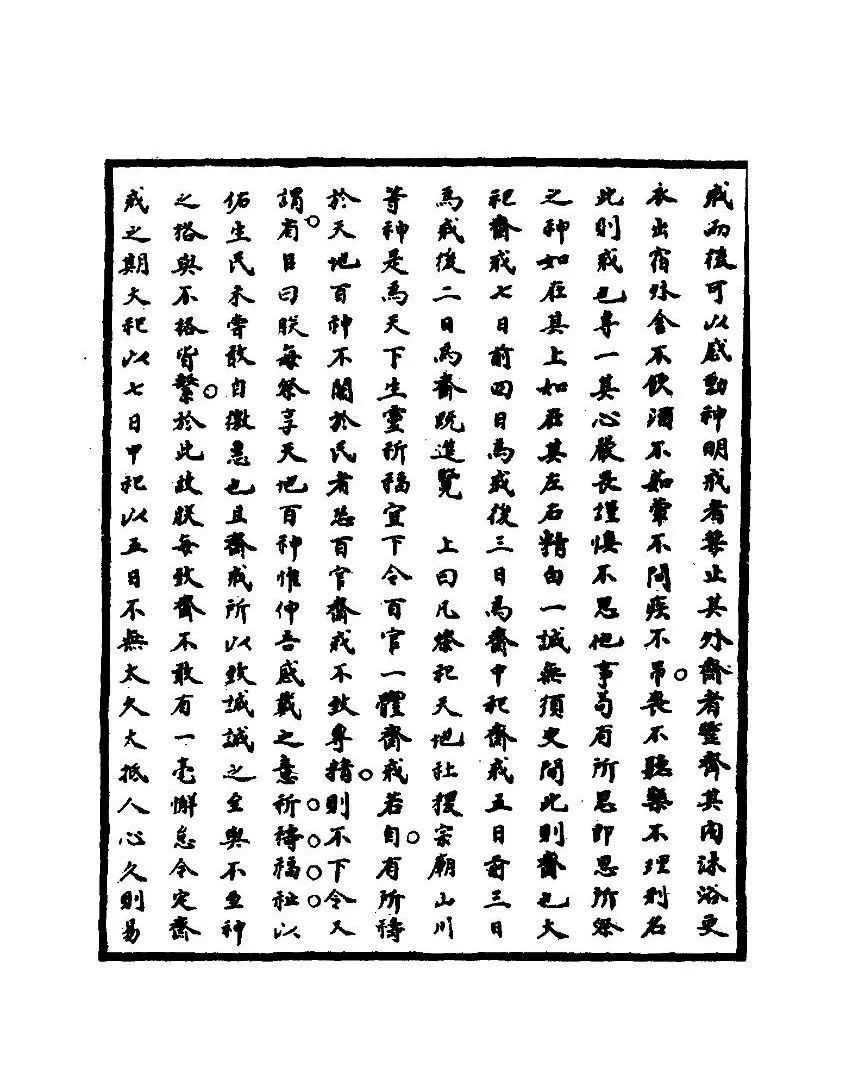 戒而後可以感動神明戒者禁止其外齋者整齊其內沐浴更
衣出宿外舍不飲酒不茹葷不問疾不吊喪不聽樂不理刑名
此則戒也專一其心嚴畏謹慎不思他事苟有所思即思所祭
之神如在其上如在其左右精白一誠無須臾間此則齋也大
祀齋戒七日前四日為戒後三日為齋中祀齋戒五日前三日
為戒後二日為齋既進覽 上曰凡祭祀天地社稷宗廟山川
等神是為天下生靈祈福宜下令百官一體齋戒若自有所禱
於天地百神不關於民者恐百官齋戒不致專精則不下令又
謂省臣曰朕每祭享天地百神惟伸吾感戴之意祈禱福祉以
佑生民未嘗敢自徼惠也且齋戒所以致誠誠之至與不至神
之格與不格皆繫於此故朕每致齋不敢有一毫懈怠今定齋
戒之期大祀以七日中祀以五日不無太久大抵人心久則易